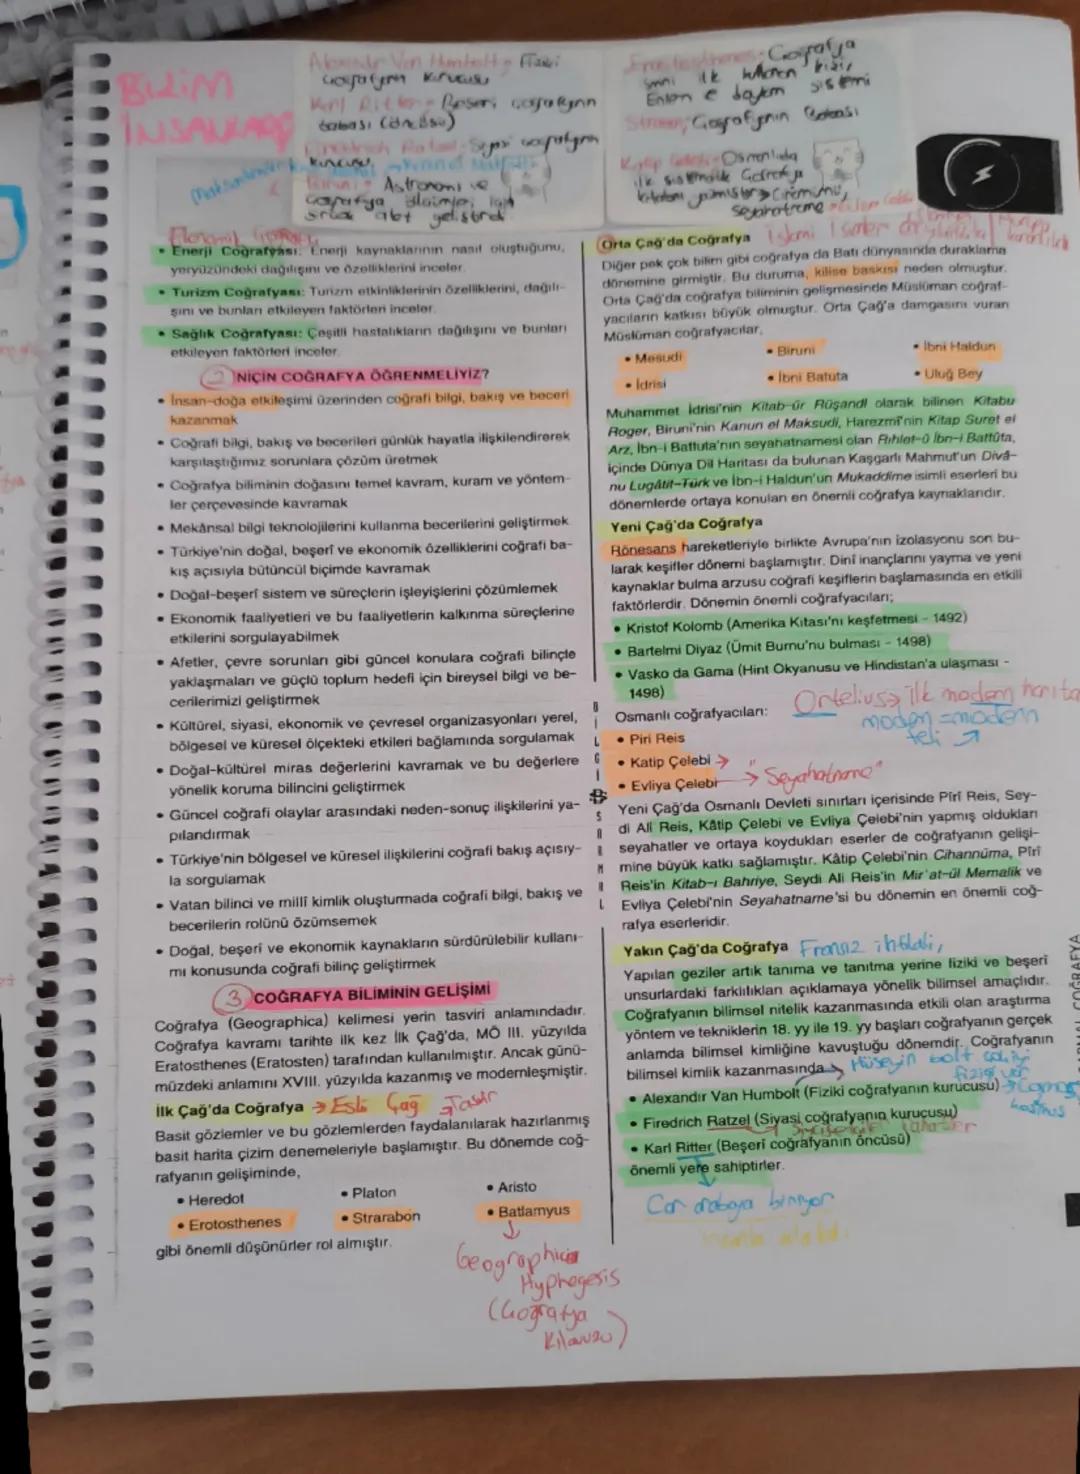 BİLİM
İNSANLARI
Alexandır Von Humbolt = Fiziki
coğrafyanın kurucusu
Karl Ritter = Beşeri coğrafyanın
babası (öncüsü)
Siyasi coğrafyanın
kurucusu
Astronomi ve
coğrafya
Coğrafya
ilk kullanan kişi,
Enlem e boylam sistemi
Coğrafyanın Babası
Osmanlıda
ilk sistematik Coğrafya
• Enerji Coğrafyası: Enerji kaynaklarının nasıl oluştuğunu,
yeryüzündeki dağılışını ve özelliklerini inceler.
• Turizm Coğrafyası: Turizm etkinliklerinin özelliklerini, dağılı-
şını ve bunları etkileyen faktörleri inceler.
• Sağlık Coğrafyası: Çeşitli hastalıkların dağılışını ve bunları
etkileyen faktörleri inceler.
2 NİÇİN COĞRAFYA ÖĞRENMELİYİZ?
• İnsan-doğa etkileşimi üzerinden coğrafi bilgi, bakış ve beceri
kazanmak
• Coğrafi bilgi, bakış ve becerileri günlük hayatla ilişkilendirerek
karşılaştığımız sorunlara çözüm üretmek
• Coğrafya biliminin doğasını temel kavram, kuram ve yöntem-
ler çerçevesinde kavramak
• Mekânsal bilgi teknolojilerini kullanma becerilerini geliştirmek
• Türkiye'nin doğal, beşerî ve ekonomik özelliklerini coğrafi ba-
kış açısıyla bütüncül biçimde kavramak
• Doğal-beşerî sistem ve süreçlerin işleyişlerini çözümlemek
• Ekonomik faaliyetleri ve bu faaliyetlerin kalkınma süreçlerine
etkilerini sorgulayabilmek
• Afetler, çevre sorunları gibi güncel konulara coğrafi bilinçle
yaklaşmaları ve güçlü toplum hedefi için bireysel bilgi ve be-
cerilerimizi geliştirmek
• Kültürel, siyasi, ekonomik ve çevresel organizasyonları yerel,
bölgesel ve küresel ölçekteki etkileri bağlamında sorgulamak
• Doğal-kültürel miras değerlerini kavramak ve bu değerlere
yönelik koruma bilincini geliştirmek
• Güncel coğrafi olaylar arasındaki neden-sonuç ilişkilerini ya-
pılandırmak
• Türkiye'nin bölgesel ve küresel ilişkilerini coğrafi bakış açısıy-
la sorgulamak
• Vatan bilinci ve millî kimlik oluşturmada coğrafi bilgi, bakış ve
becerilerin rolünü özümsemek
• Doğal, beşerî ve ekonomik kaynakların sürdürülebilir kullanı-
mı konusunda coğrafi bilinç geliştirmek
3 COĞRAFYA BİLİMİNİN GELİŞİMİ
Coğrafya (Geographica) kelimesi yerin tasviri anlamındadır.
Coğrafya kavramı tarihte ilk kez İlk Çağ'da, MÖ III. yüzyılda
Eratosthenes (Eratosten) tarafından kullanılmıştır. Ancak günü-
müzdeki anlamını XVIII. yüzyılda kazanmış ve modernleşmiştir.
İlk Çağ'da Coğrafya → Eski Çağ
Basit gözlemler ve bu gözlemlerden faydalanılarak hazırlanmış
basit harita çizim denemeleriyle başlamıştır. Bu dönemde coğ-
rafyanın gelişiminde,
• Heredot • Platon • Aristo
• Erotosthenes • Strarabon • Batlamyus
gibi önemli düşünürler rol almıştır.
Geographica
Hyphegesis
(Coğrafya
Kılavuzu)
Orta Çağ'da Coğrafya
Diğer pek çok bilim gibi coğrafya da Batı dünyasında duraklama
dönemine girmiştir. Bu duruma, kilise baskısı neden olmuştur.
Orta Çağ'da coğrafya biliminin gelişmesinde Müslüman coğraf-
yacıların katkısı büyük olmuştur. Orta Çağ'a damgasını vuran
Müslüman coğrafyacılar,
• Mesudi • Biruni • İbni Haldun
• İdrisi • İbni Batuta • Uluğ Bey
Muhammet İdrisi'nin Kitab-ür Rüşandl olarak bilinen Kitabu
Roger, Biruni'nin Kanun el Maksudi, Harezmî'nin Kitap Suret el
Arz, İbn-i Battuta'nın seyahatnamesi olan Rıhlet-ü İbn-i Battûta,
içinde Dünya Dil Haritası da bulunan Kaşgarlı Mahmut'un Divâ-
nu Lugâtit-Türk ve İbn-i Haldun'un Mukaddime isimli eserleri bu
dönemlerde ortaya konulan en önemli coğrafya kaynaklarıdır.
Yeni Çağ'da Coğrafya
Rönesans hareketleriyle birlikte Avrupa'nın izolasyonu son bu-
larak keşifler dönemi başlamıştır. Dinî inançlarını yayma ve yeni
kaynaklar bulma arzusu coğrafi keşiflerin başlamasında en etkili
faktörlerdir. Dönemin önemli coğrafyacıları;
• Kristof Kolomb (Amerika Kıtası'nı keşfetmesi - 1492)
• Bartelmi Diyaz (Ümit Burnu'nu bulması - 1498)
• Vasko da Gama (Hint Okyanusu ve Hindistan'a ulaşması -
1498)
Ortelius → ilk modern harita
Osmanlı coğrafyacıları:
• Piri Reis
• Katip Çelebi → "
• Evliya Çelebi → Seyahatname"
Yeni Çağ'da Osmanlı Devleti sınırları içerisinde Pîrî Reis, Sey-
di Ali Reis, Kâtip Çelebi ve Evliya Çelebi'nin yapmış oldukları
seyahatler ve ortaya koydukları eserler de coğrafyanın gelişi-
mine büyük katkı sağlamıştır. Kâtip Çelebi'nin Cihannüma, Pîrî
Reis'in Kitab-ı Bahriye, Seydi Ali Reis'in Mir'at-ül Memalik ve
Evliya Çelebi'nin Seyahatname'si bu dönemin en önemli coğ-
rafya eserleridir.
Yakın Çağ'da Coğrafya Fransız ihtilali,
Yapılan geziler artık tanıma ve tanıtma yerine fiziki ve beşerî
unsurlardaki farklılıkları açıklamaya yönelik bilimsel amaçlıdır.
Coğrafyanın bilimsel nitelik kazanmasında etkili olan araştırma
yöntem ve tekniklerin 18. yy ile 19. yy başları coğrafyanın gerçek
anlamda bilimsel kimliğine kavuştuğu dönemdir. Coğrafyanın
bilimsel kimlik kazanmasında
• Alexandır Van Humbolt (Fiziki coğrafyanın kurucusu)
• Firedrich Ratzel (Siyasi coğrafyanın kurucusu)
• Karl Ritter (Beşerî coğrafyanın öncüsü)
önemli yere sahiptirler.
Car arabaya biniyor